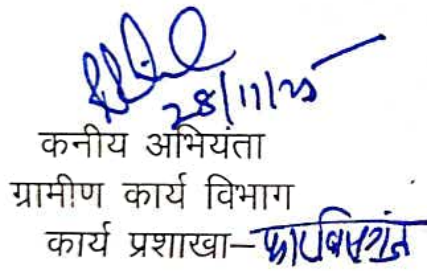 28/11/25
कनीय अभियंता
ग्रामीण कार्य विभाग
कार्य प्रशाखा–फारबिसगंज